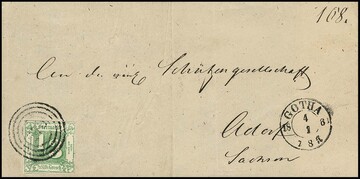 168.
An die Schützengesellschaft
GOTHA
4
1
Adorf
Sachsen